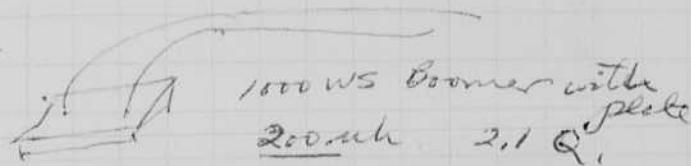 1000 WS Boomer with
plate
200 uh 2.1 Q.